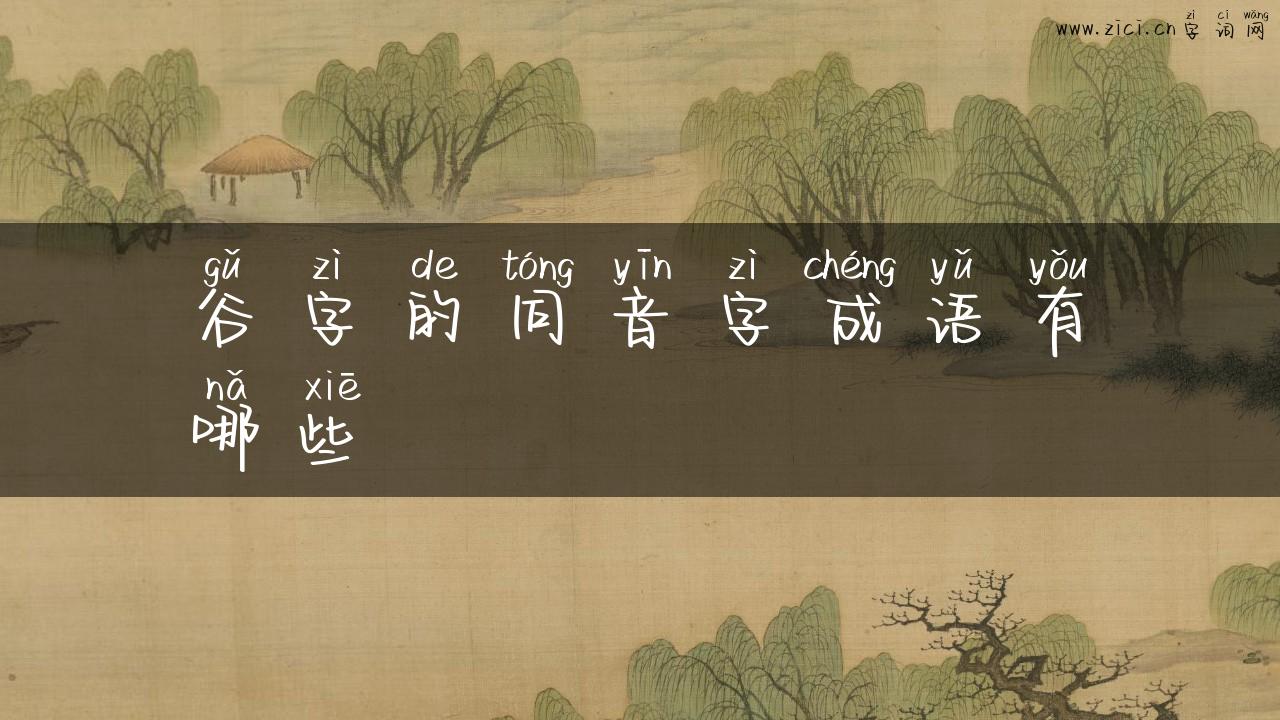 zì cí wǎng
www.zici.cn 字词网
gǔ zì de tóng yīn zì chéng yǔ yǒu
谷字的同音字成语有
nǎ xiē
哪些